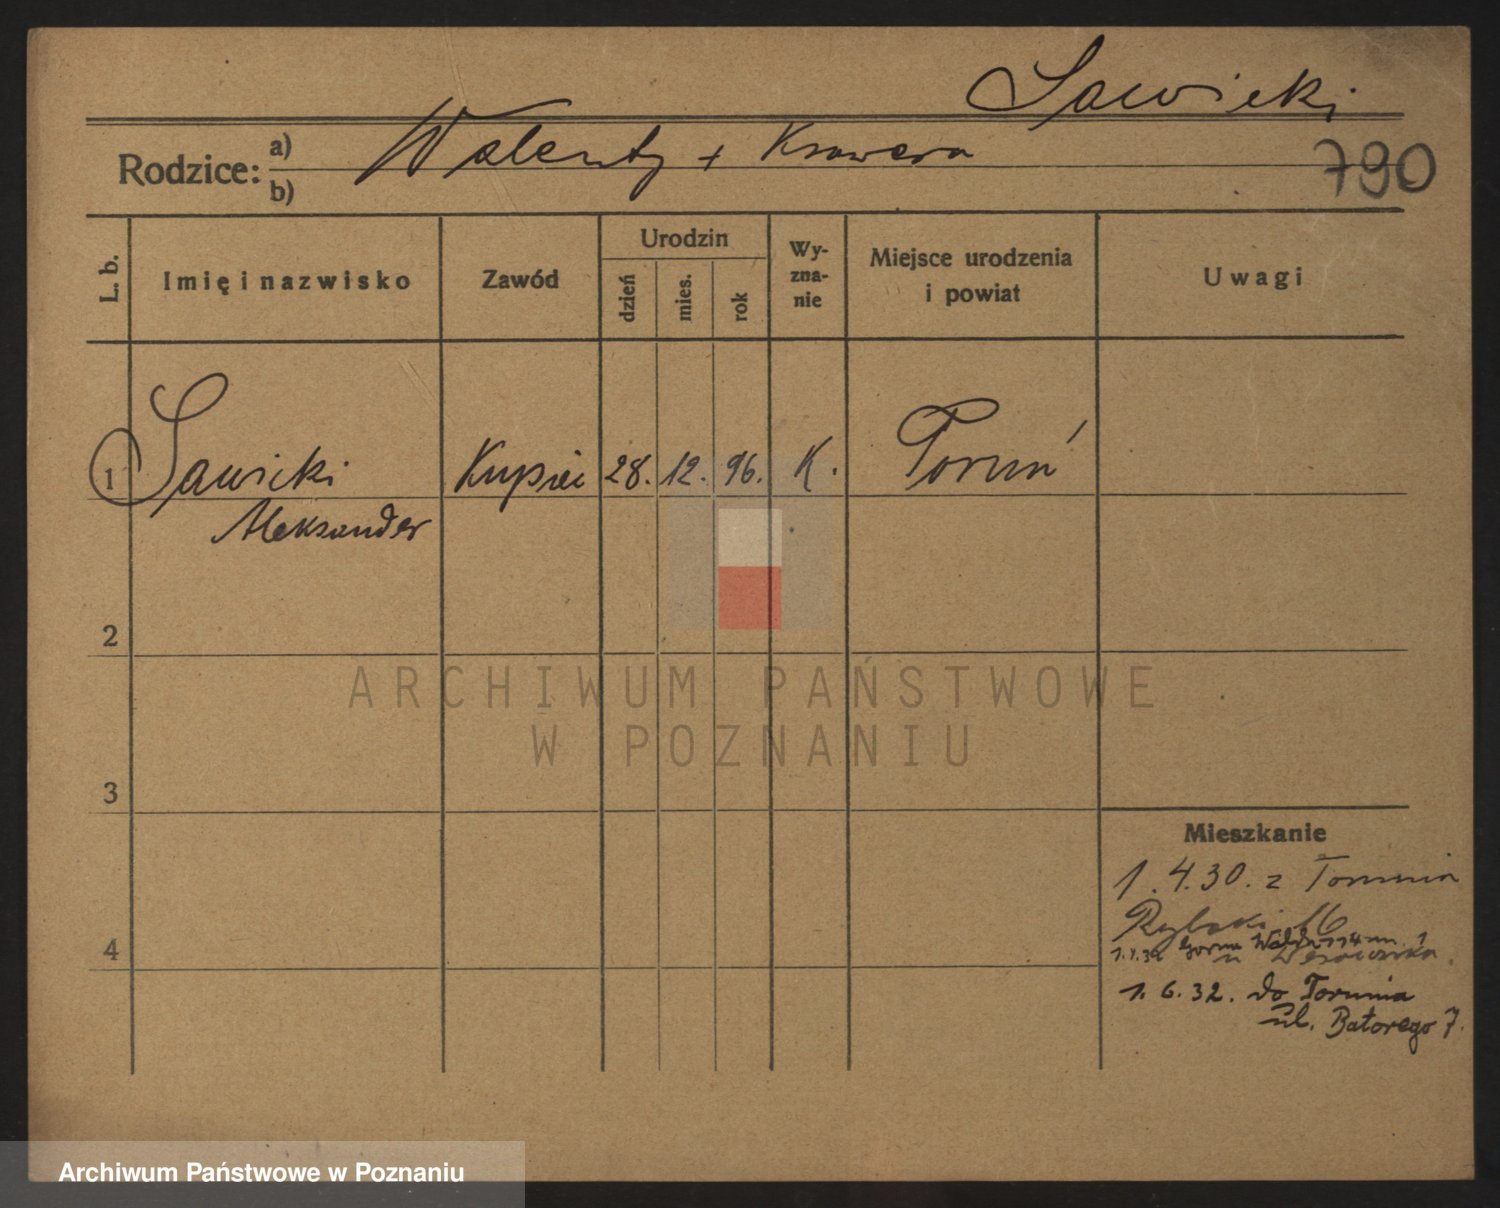 Sawicki
Rodzice: a) Walenty + Ksawera
b)
790
L. b. Imię i nazwisko Zawód Urodzin dzień mies. rok Wy-zna-nie Miejsce urodzenia i powiat Uwagi
1 Sawicki Kupiec 28. 12. 96. K. Toruń
Aleksander
2
ARCHIWUM PAŃSTWOWE
W POZNANIU
3
Mieszkanie
1.4.30. z Torunia
Rybaki 16
Górna Wilda 114 m. 1
4
1.6.32. do Torunia
ul. Batorego 7.
Archiwum Państwowe w Poznaniu